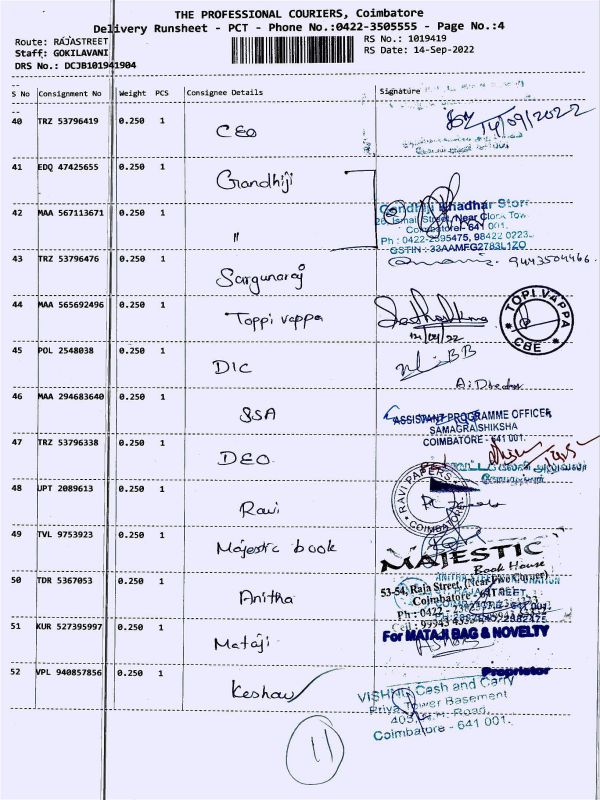 THE PROFESSIONAL COURIERS, Coimbatore
Delivery Runsheet - PCT - Phone No.:0422-3505555 - Page No.:4
Route: RAJASTREET RS No.: 1019419
Staff: GOKILAVANI RS Date: 14-Sep-2022
DRS No.: DCJB101941904
S No Consignment No Weight PCS Consignee Details Signature
40 TRZ 53796419 0.250 1 CEO 14/09/2022
41 EDQ 47425655 0.250 1 Gandhiji
Gandhiji Khadhar Store
26, Ismail Street, Near Clock Tow
42 MAA 567113671 0.250 1 "
Coimbatore - 641 001.
Ph : 0422-2395475, 98422 0223
GSTIN : 33AAMFG2783L1ZO
43 TRZ 53796476 0.250 1 Sargunaraj 9443504466.
44 MAA 565692496 0.250 1 Toppi vappa
14/09/22
TOPI VAPPA
CBE
45 POL 2548038 0.250 1 DIC
46 MAA 294683640 0.250 1 SSA
ASSISTANT PROGRAMME OFFICER
SAMAGRA SHIKSHA
COIMBATORE - 641 001.
47 TRZ 53796338 0.250 1 DEO
48 UPT 2089613 0.250 1 Ravi
RAVI PAPERS
COIMBATORE
49 TVL 9753923 0.250 1 Majestic book
MAJESTIC
Book House
53-54, Raja Street, (Near Five Corner)
Coimbatore - 641
50 TDR 5367053 0.250 1 Anitha
51 KUR 527395997 0.250 1 Mataji
For MATAJI BAG & NOVELTY
Proprietor
52 VPL 940857856 0.250 1 Keshav
VISHNU Cash and Carry
Priya Tower Basement
403, N.H. Road,
Coimbatore - 641 001.
11